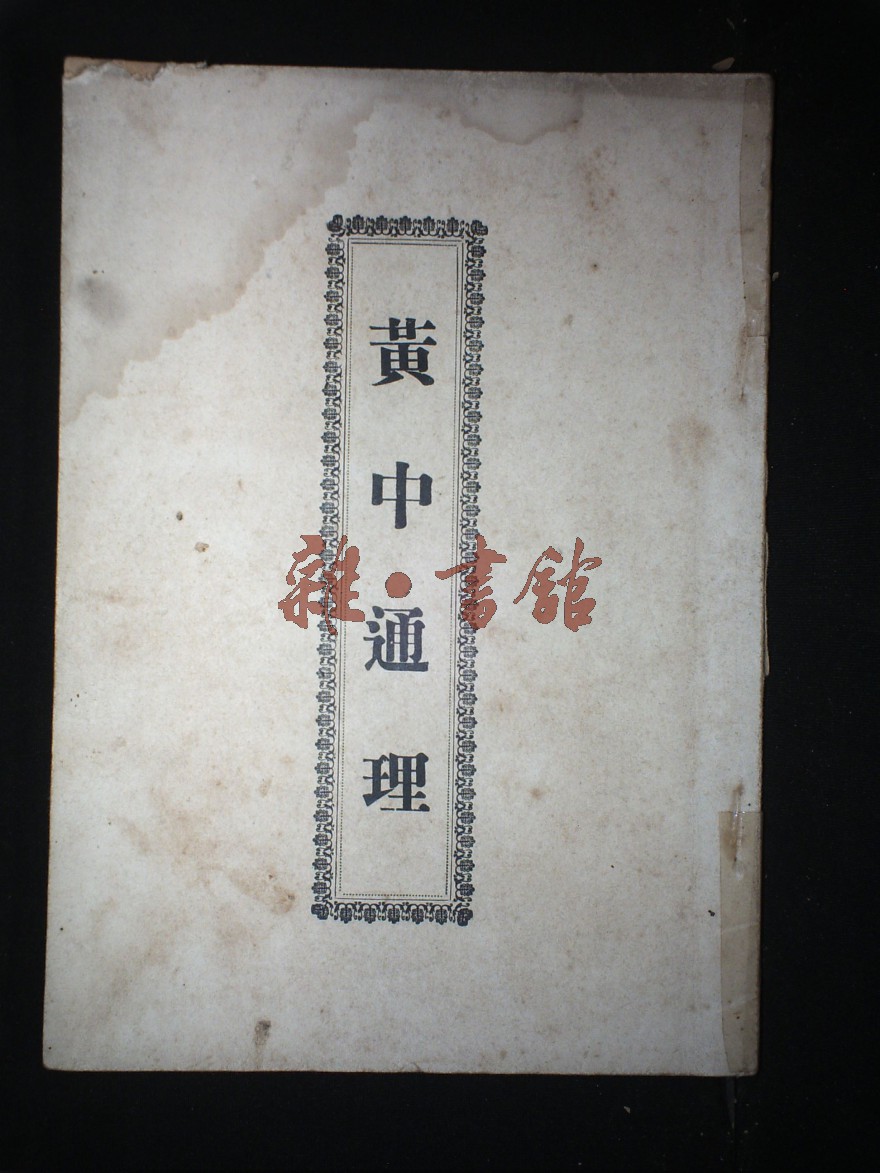 黃中通理
雜·書館